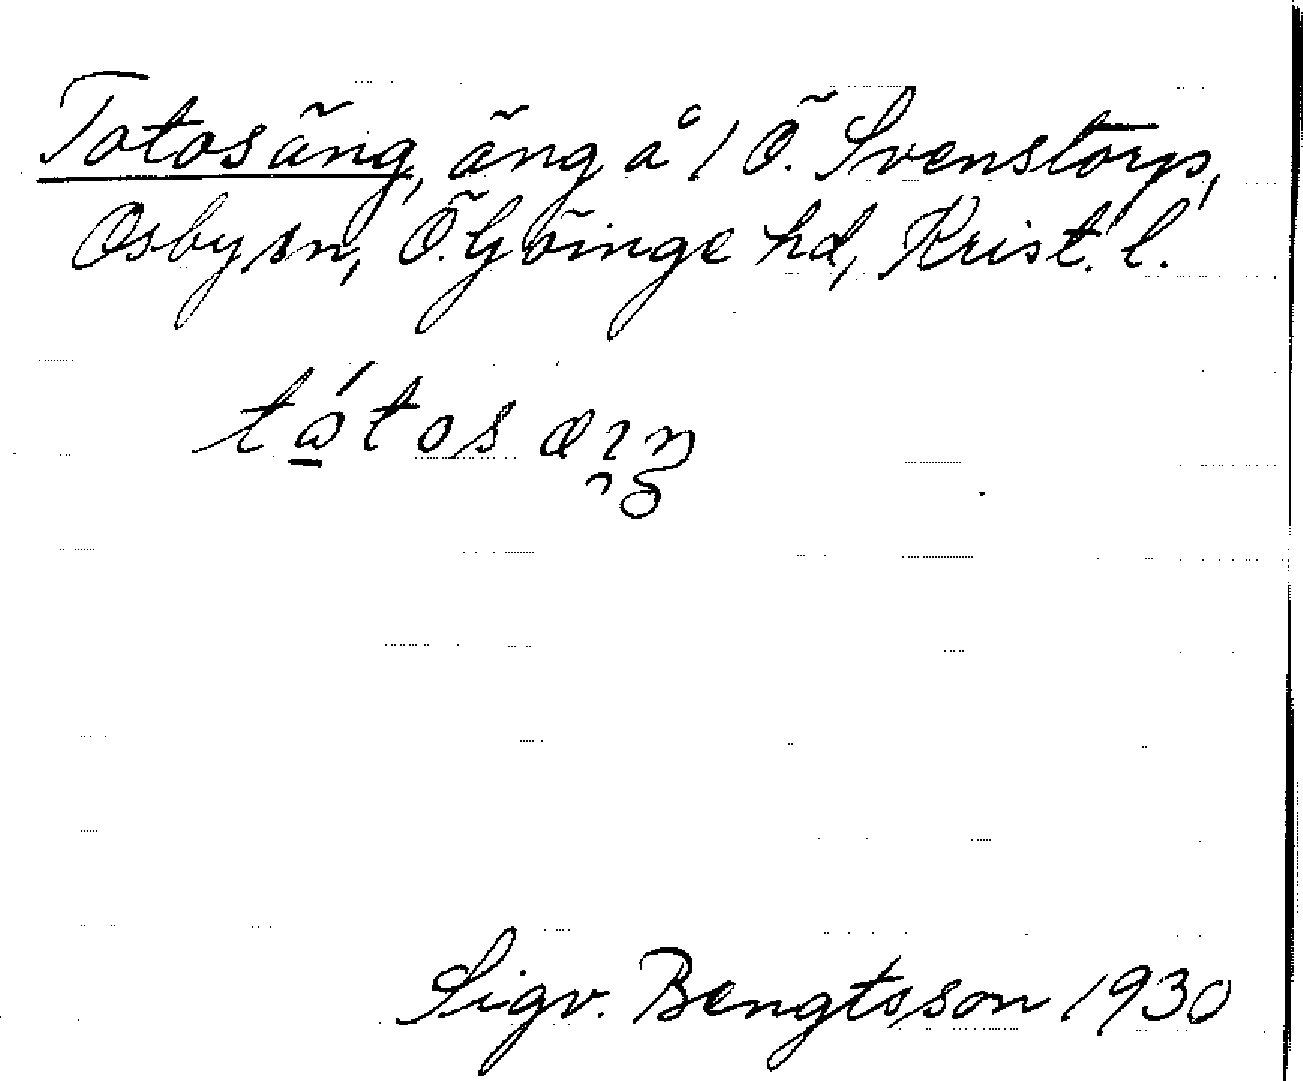 Totosäng, äng å 1 Ö. Svenstorp,
Osby sn, Ö. Göinge hd, Krist. l.
Sigv. Bengtsson 1930